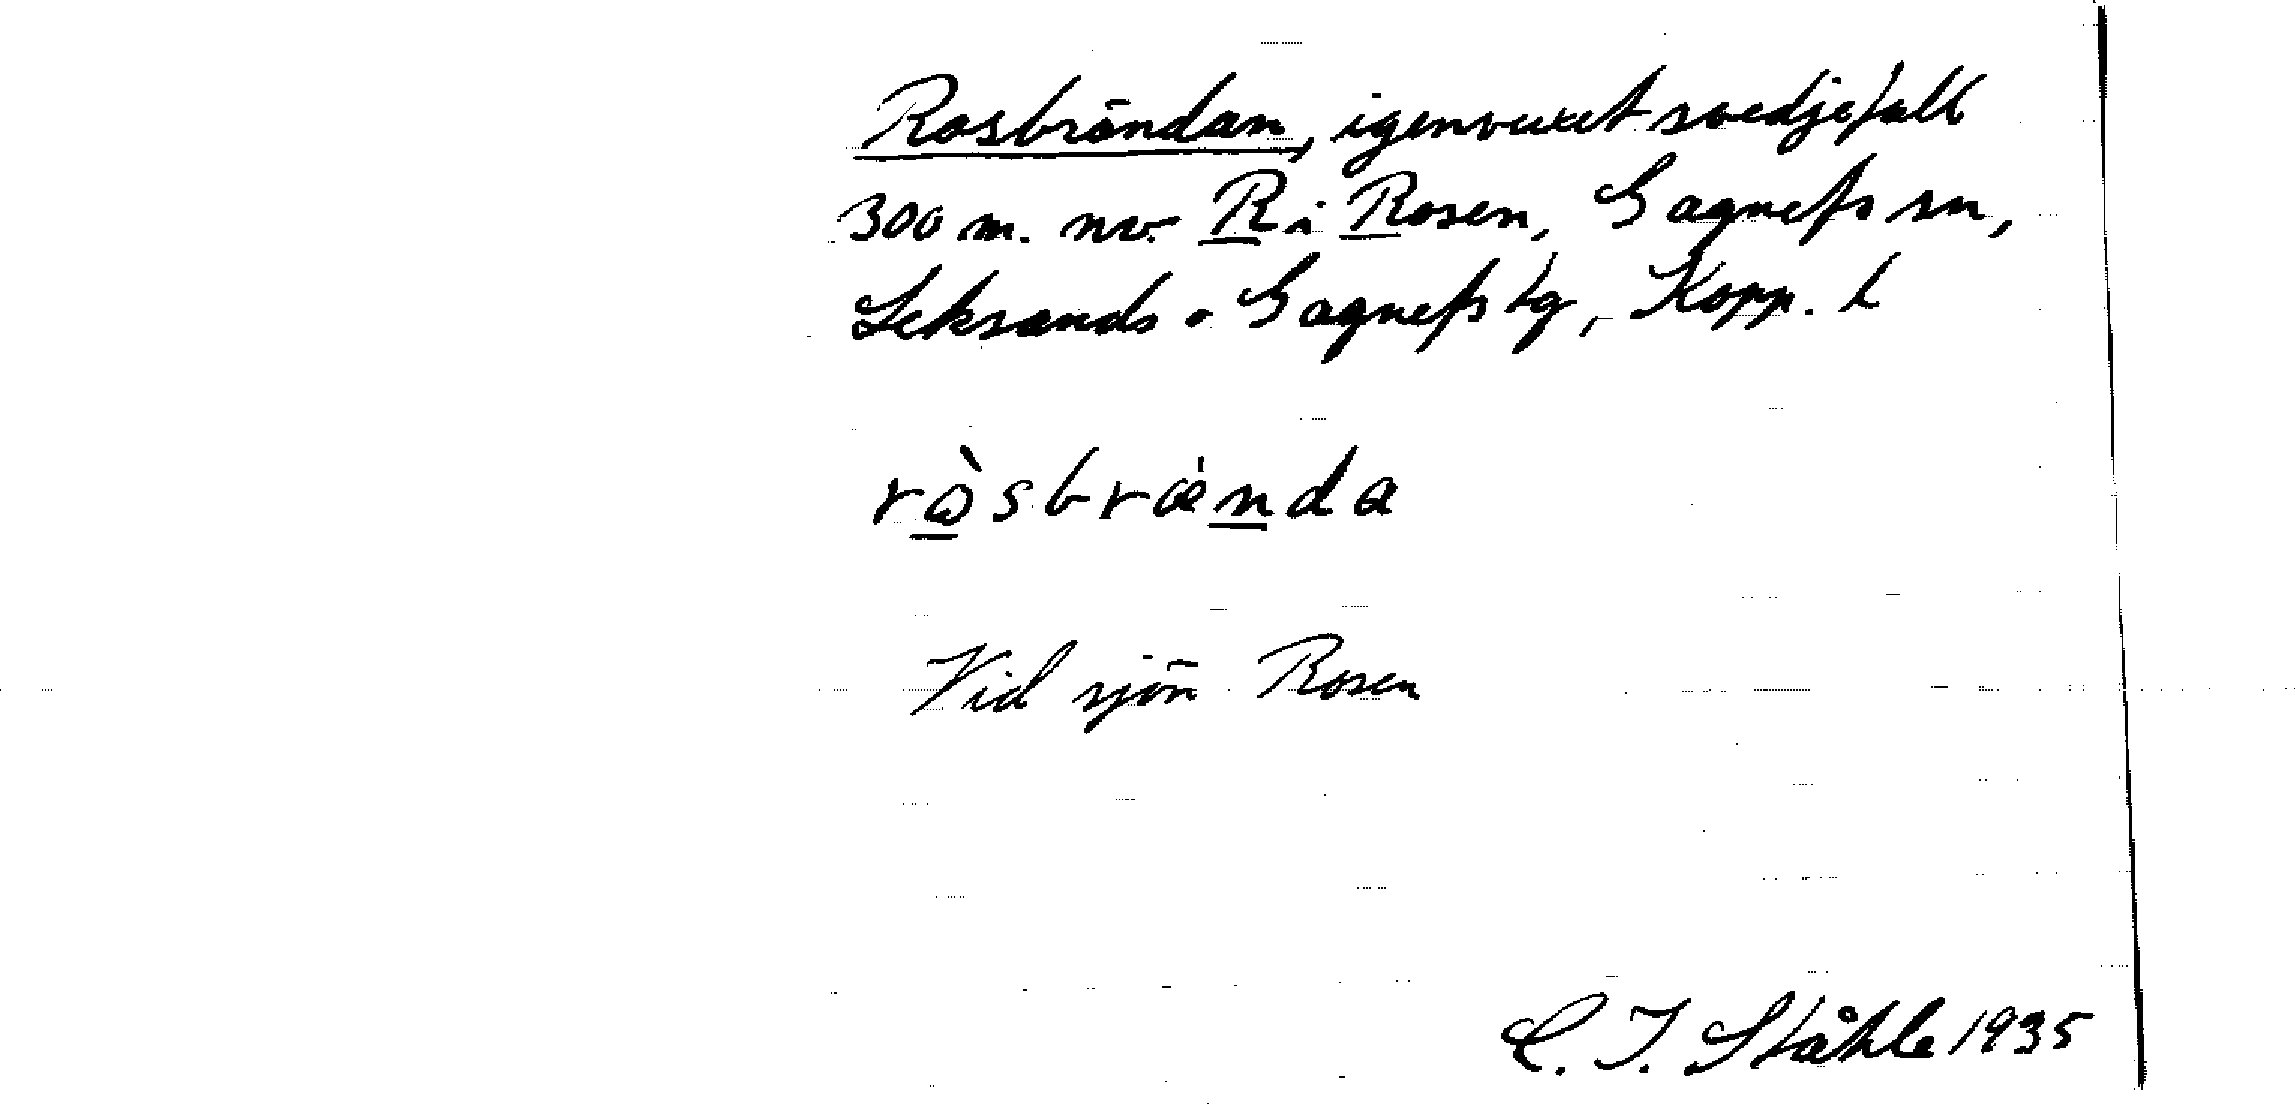 Rosbrändan, igenvuxet svedjefall
300 m. nv. R i Rosen, Gagnefs sn,
Leksands o Gagnefs tg, Kopp. l
ròsbrænda
Vid sjön Rosen
C. I. Ståhle 1935